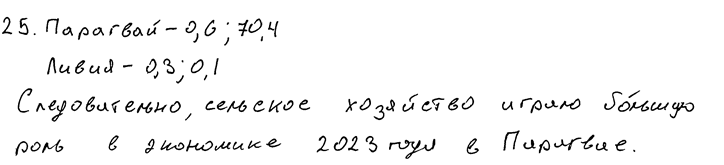 25. Парагвай – 0,6; 70,4
Ливия – 0,3; 0,1
Следовательно, сельское хозяйство играло бо́льшую
роль в экономике 2023 года в Парагвае.